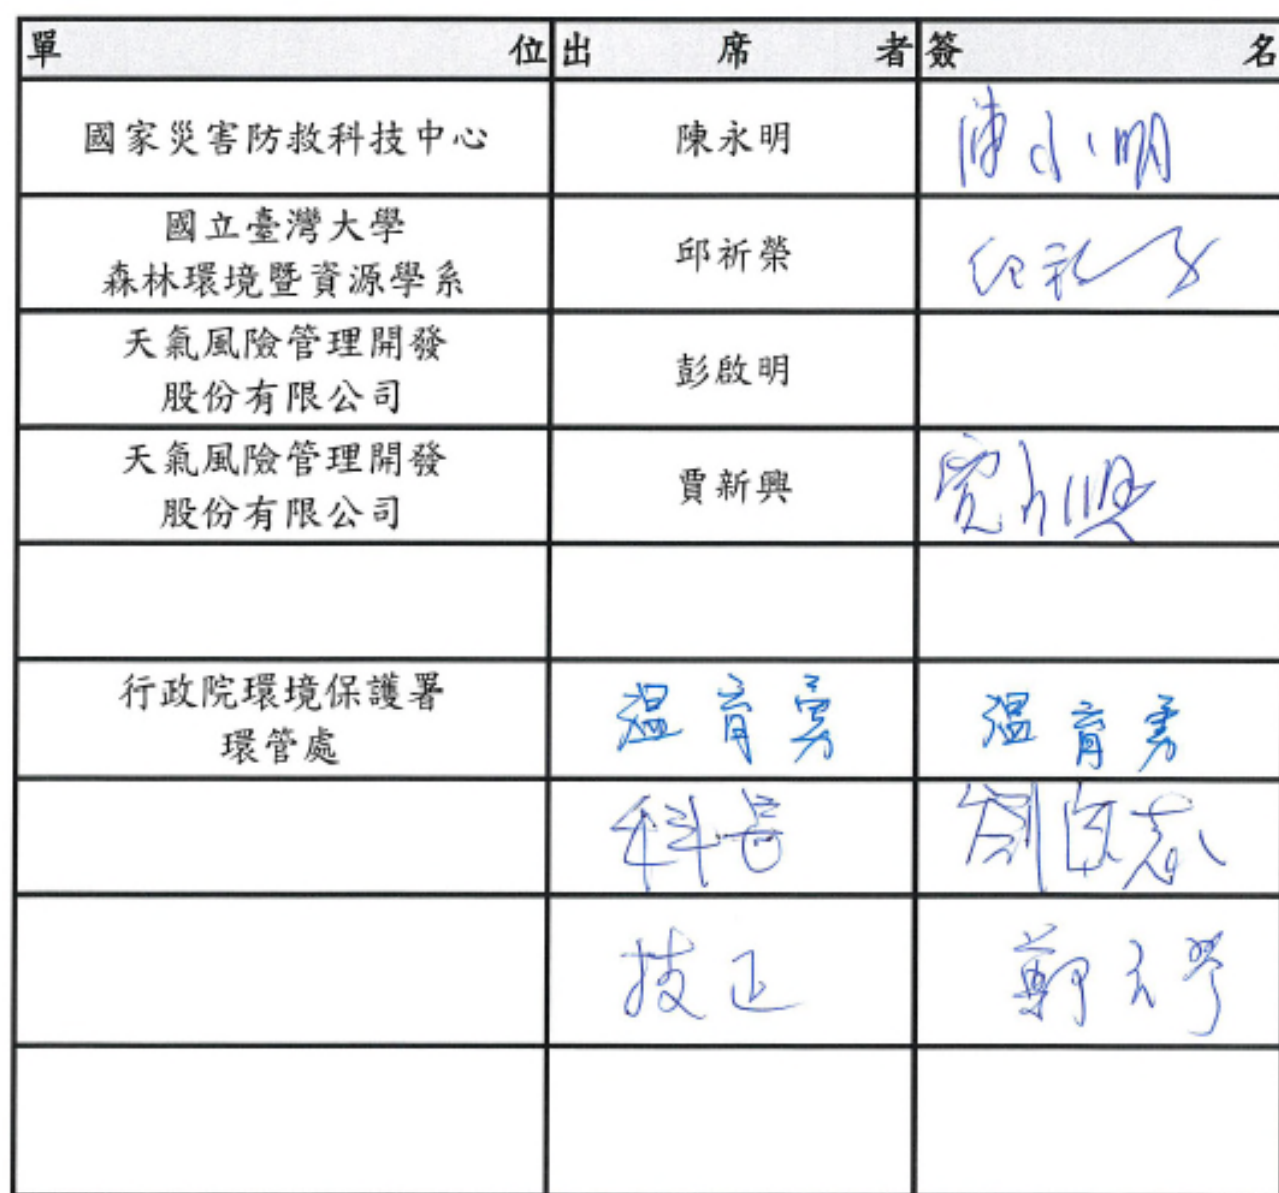 單位 出席者 簽名
國家災害防救科技中心 陳永明
國立臺灣大學
森林環境暨資源學系 邱祈榮
天氣風險管理開發
股份有限公司 彭啟明
天氣風險管理開發
股份有限公司 賈新興
行政院環境保護署
環管處 溫育勇 溫育勇
科長
技正